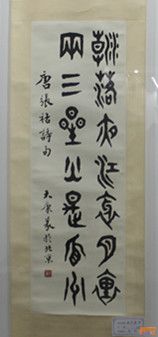 潮落夜江斜月裏
兩三星火是瓜州
唐張祜詩句
大康篆於北京